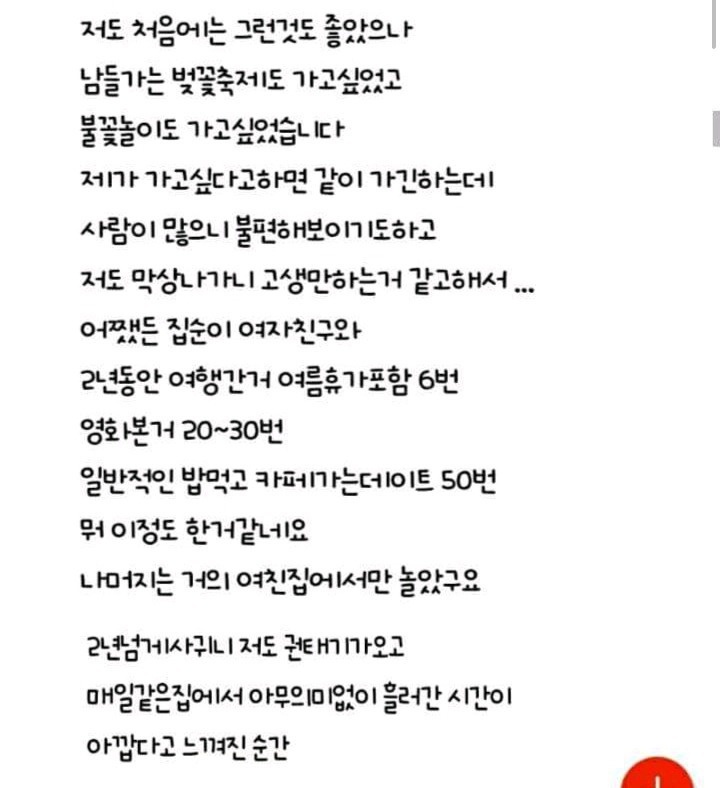 저도 처음에는 그런것도 좋았으나
남들가는 벚꽃축제도 가고싶었고
불꽃놀이도 가고싶었습니다
제가 가고싶다고하면 같이 가긴하는데
사람이 많으니 불편해보이기도하고
저도 막상나가니 고생만하는거 같고해서 ...
어쨌든 집순이 여자친구와
2년동안 여행간거 여름휴가포함 6번
영화본거 20~30번
일반적인 밥먹고 카페가는데이트 50번
뭐 이정도 한거같네요
나머지는 거의 여친집에서만 놀았구요
2년넘게사귀니 저도 권태기가오고
매일같은집에서 아무의미없이 흘러간 시간이
아깝다고 느껴진 순간